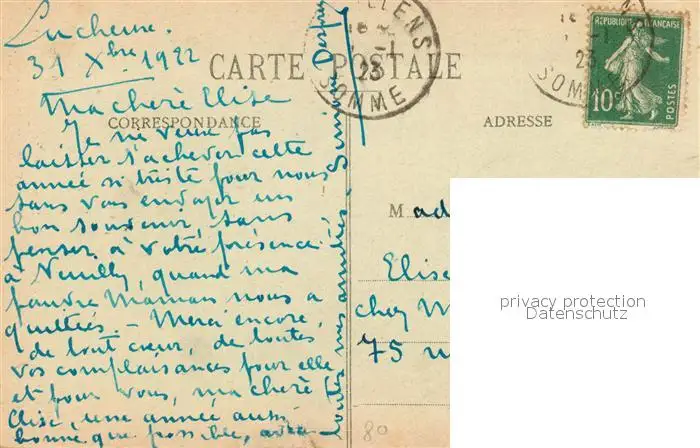 Lucheux.
31 Xbre 1922
CARTE POSTALE
Ma chère Elise
CORRESPONDANCE
ADRESSE
Je ne veux pas
laisser s'achever cette
année si triste pour nous
sans vous envoyer un
bon souvenir, sans
penser à votre présence
à Neuilly, quand ma
pauvre Maman nous a
quittés. - Merci encore,
de tout cœur, de toutes
vos complaisances pour elle
et pour vous, ma chère
Elise, une année aussi
bonne que possible, avec
toutes mes amitiés - Simone
LLENS
1-1
23
SOMME
REPUBLIQUE FRANÇAISE
10c
POSTES
M ad
Elise
chez M
75 
80
privacy protection
Datenschutz